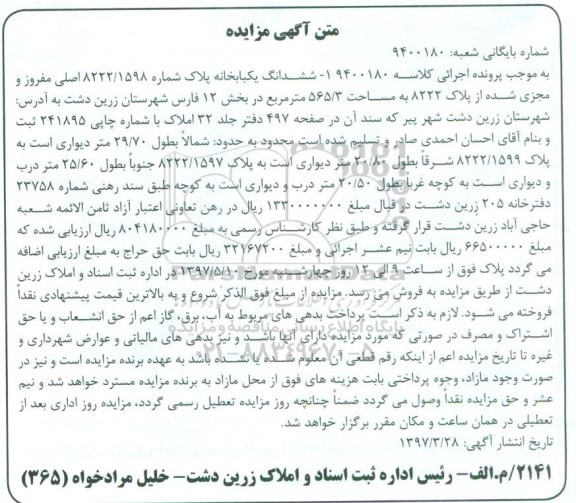 متن آگهی مزایده
شماره بایگانی شعبه: ۹۴۰۰۱۸۰
به موجب پرونده اجرائی کلاسه ۹۴۰۰۱۸۰ ۱- ششدانگ یکبابخانه پلاک شماره ۸۲۲۲/۱۵۹۸ اصلی مفروز و
مجزی شده از پلاک ۸۲۲۲ به مساحت ۵۶۵/۳ مترمربع در بخش ۱۲ فارس شهرستان زرین دشت به آدرس:
شهرستان زرین دشت شهر پیر که سند آن در صفحه ۴۹۷ دفتر جلد ۳۲ املاک با شماره چاپی ۲۴۱۸۹۵ ثبت
و بنام آقای احسان احمدی صادر و تسلیم شده است محدود به حدود: شمالاً بطول ۲۹/۷۰ متر دیواری است به
پلاک ۸۲۲۲/۱۵۹۹ شرقاً بطول ۲۰/۸۰ متر دیواری است به پلاک ۸۲۲۲/۱۵۹۷ جنوباً بطول ۲۵/۶۰ متر درب
و دیواری است به کوچه غرباً بطول ۲۰/۵۰ متر درب و دیواری است به کوچه طبق سند رهنی شماره ۲۳۷۵۸
دفترخانه ۲۰۵ زرین دشت در قبال مبلغ ۱۳۳۰۰۰۰۰۰۰ ریال در رهن تعاونی اعتبار آزاد ثامن الائمه شعبه
حاجی آباد زرین دشت قرار گرفته و طبق نظر کارشناس رسمی به مبلغ ۸۰۴۱۸۰۰۰۰ ریال ارزیابی شده که
مبلغ ۶۶۵۰۰۰۰۰ ریال بابت نیم عشر اجرائی و مبلغ ۳۲۱۶۷۲۰۰ ریال بابت حق حراج به مبلغ ارزیابی اضافه
می گردد پلاک فوق از ساعت ۹ الی ۱۲ روز چهارشنبه مورخ ۱۳۹۷/۵/۱۰ در اداره ثبت اسناد و املاک زرین
دشت از طریق مزایده به فروش می رسد. مزایده از مبلغ فوق الذکر شروع و به بالاترین قیمت پیشنهادی نقداً
فروخته می شود. لازم به ذکر است پرداخت بدهی های مربوط به آب، برق، گاز اعم از حق انشعاب و یا حق
اشتراک و مصرف در صورتی که مورد مزایده دارای آنها باشد و نیز بدهی های مالیاتی و عوارض شهرداری و
غیره تا تاریخ مزایده اعم از اینکه رقم قطعی آن معلوم شده یا نشده باشد به عهده برنده مزایده است و نیز در
صورت وجود مازاد، وجوه پرداختی بابت هزینه های فوق از محل مازاد به برنده مزایده مسترد خواهد شد و نیم
عشر و حق مزایده نقداً وصول می گردد ضمناً چنانچه روز مزایده تعطیل رسمی گردد، مزایده روز اداری بعد از
تعطیلی در همان ساعت و مکان مقرر برگزار خواهد شد.
تاریخ انتشار آگهی: ۱۳۹۷/۳/۲۸
۲۱۴۱/م.الف- رئیس اداره ثبت اسناد و املاک زرین دشت- خلیل مرادخواه (۳۶۵)